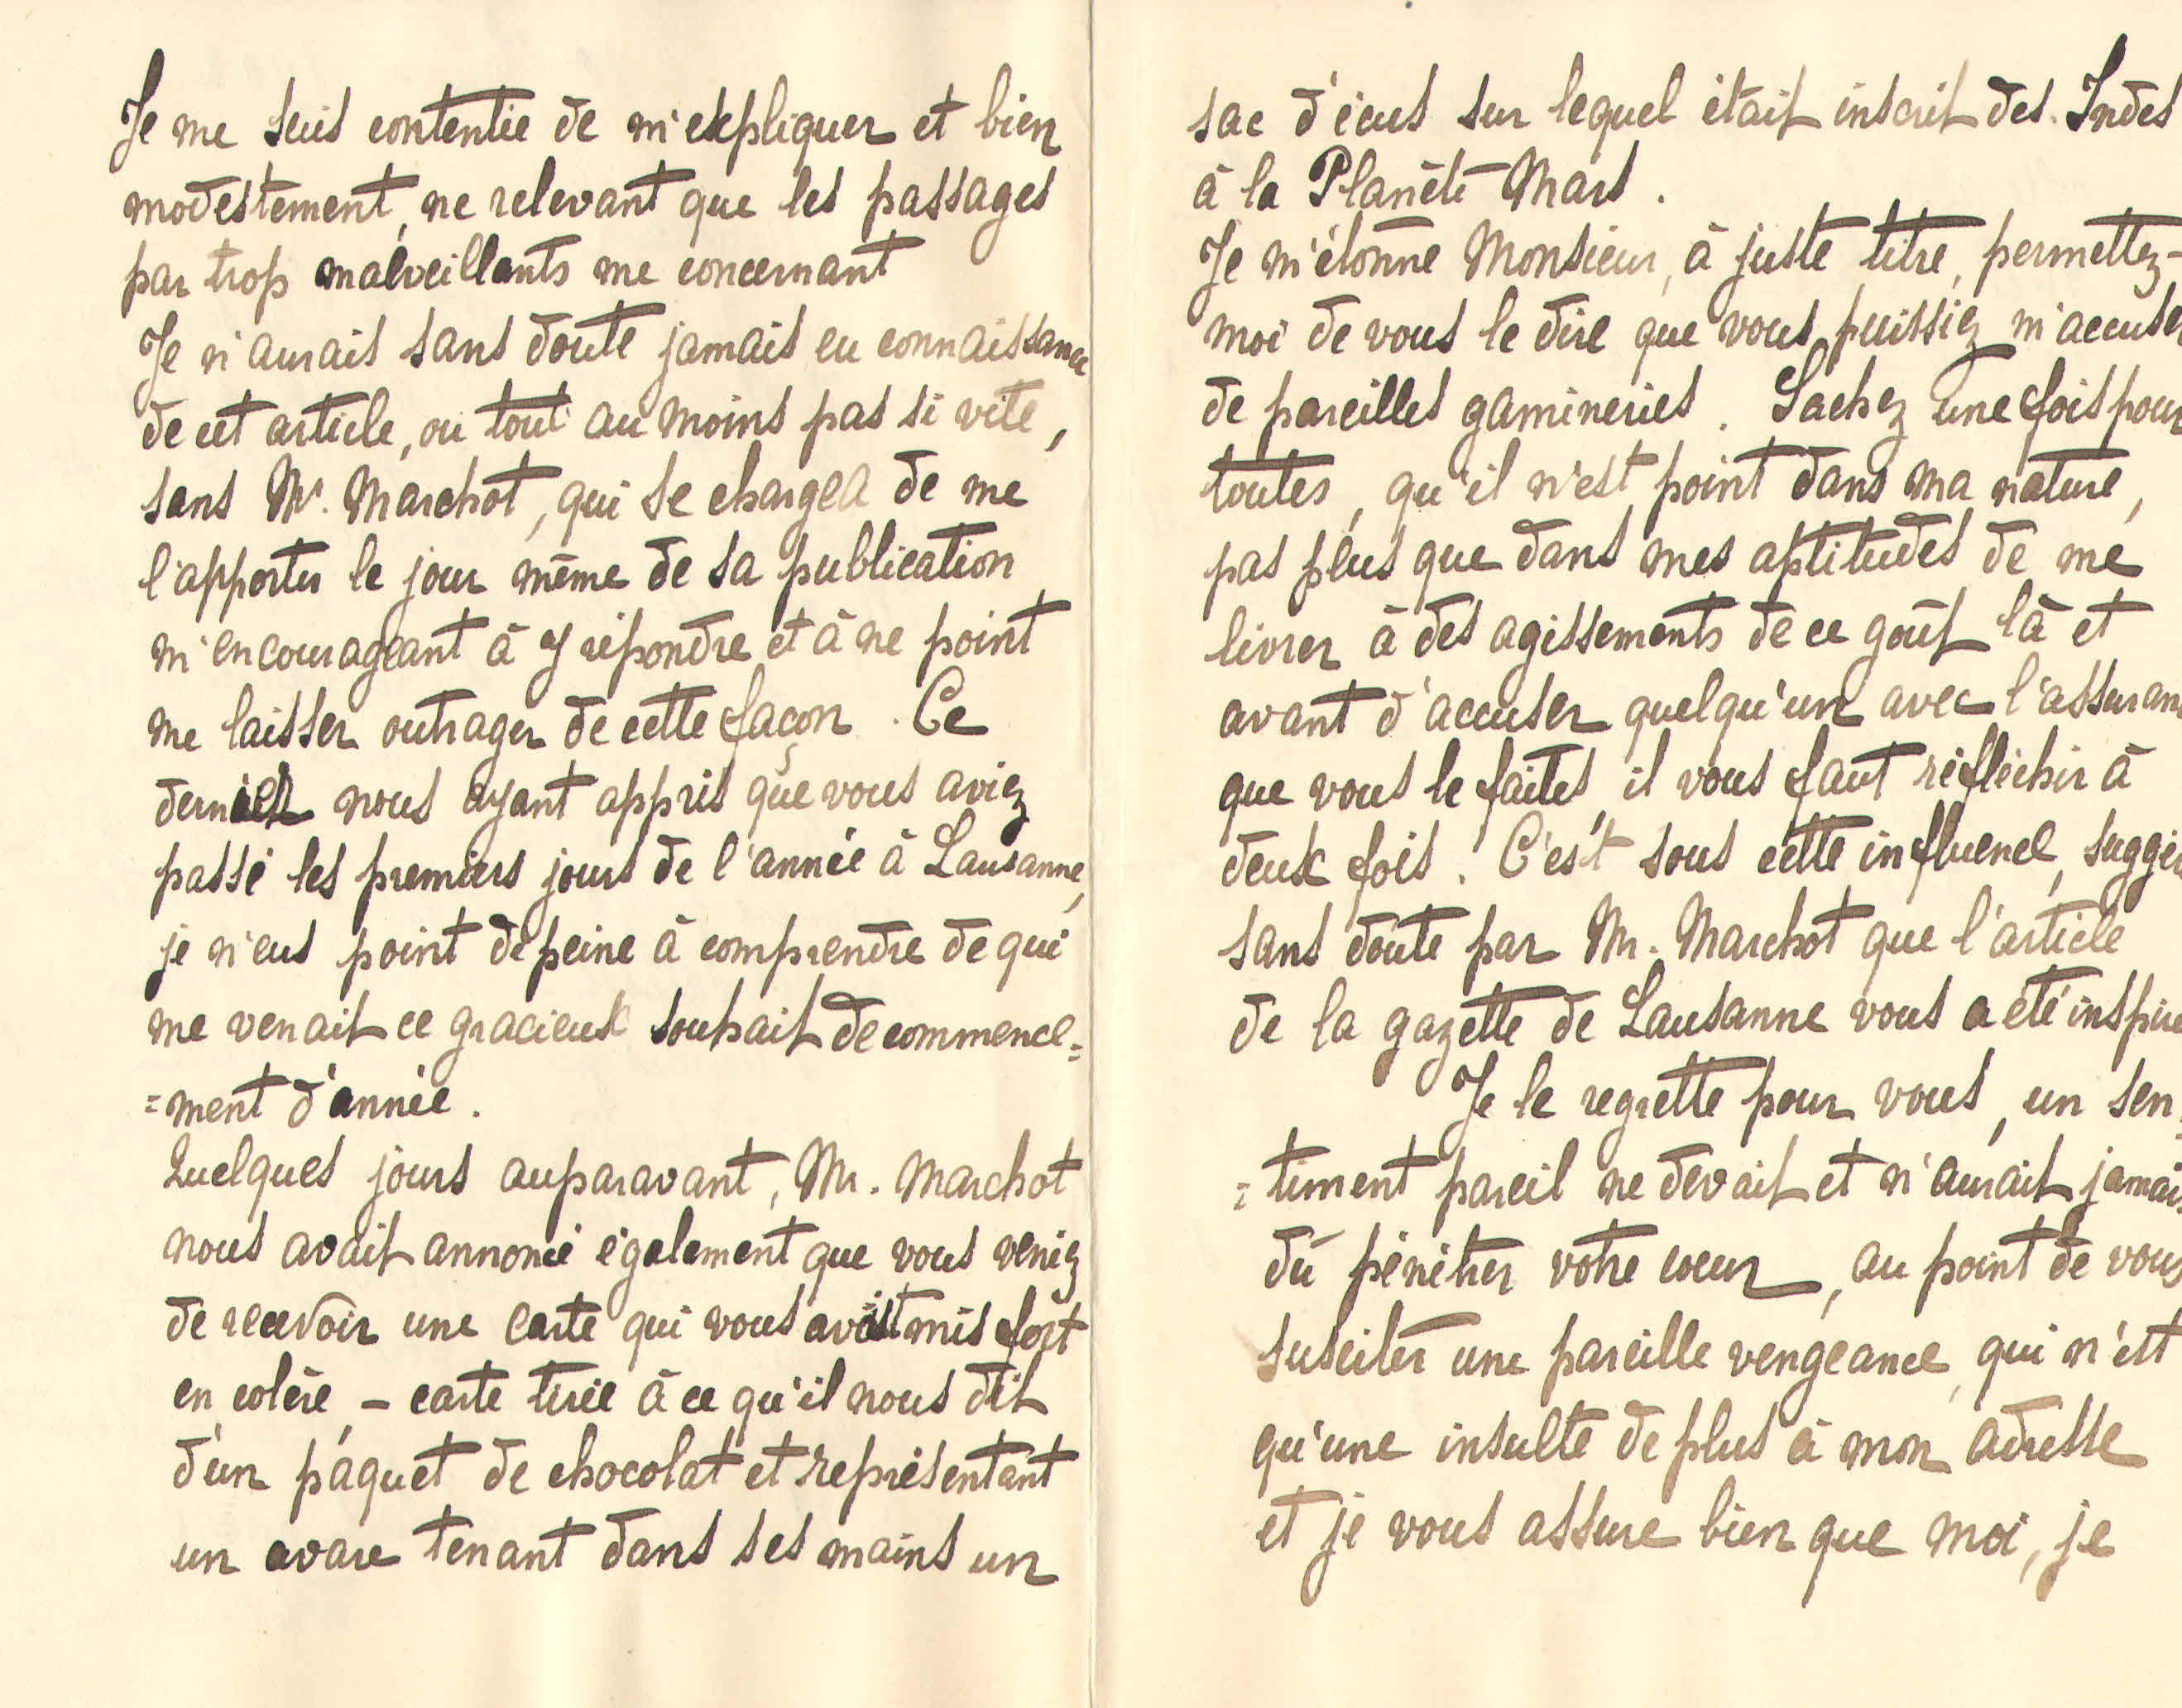 Je me suis contentée de m'expliquer et bien
modestement, ne relevant que les passages
par trop malveillants me concernant
Je n'aurais sans doute jamais eu connaissance
de cet article, ou tout au moins pas si vite,
sans Mr. Marchot, qui se chargea de me
l'apporter le jour même de sa publication
m'encourageant à y répondre et à ne point
me laisser outrager de cette façon. Ce
dernier nous ayant appris que vous aviez
passé les premiers jours de l'année à Lausanne,
je n'eus point de peine à comprendre de qui
me venait ce gracieux souhait de commence=
=ment d'année.
Quelques jours auparavant, Mr. Marchot
nous avait annoncé également que vous veniez
de recevoir une carte qui vous avait mis fort
en colère, - carte tirée à ce qu'il nous dit
d'un paquet de chocolat et représentant
un avare tenant dans ses mains un
sac d'écus sur lequel était inscrit des. Indes
à la Planète Mars.
Je m'étonne Monsieur, à juste titre, permettez-
moi de vous le dire que vous puissiez m'accuser
de pareilles gamineries. Sachez une fois pour
toutes, qu'il n'est point dans ma nature,
pas plus que dans mes aptitudes de me
livrer à des agissements de ce goût là et
avant d'accuser quelqu'un avec l'assuran
que vous le faites, il vous faut réfléchir à
deux fois. C'est sous cette influence, suggér
sans doute par Mr. Marchot que l'article
de la gazette de Lausanne vous a été inspiré
Je le regrette pour vous, un sen=
=timent pareil ne devait et n'aurait jamais
dû pénétrer votre coeur, au point de vous
susciter une pareille vengeance, qui n'est
qu'une insulte de plus à mon adresse
et je vous assure bien que moi, je